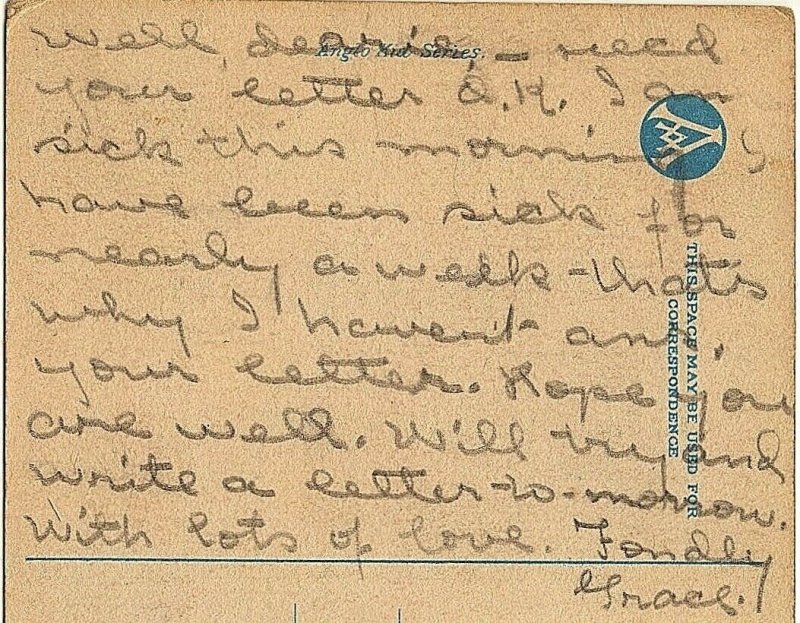 Well, dearie, – recd
Anglo Series.
your letter O.K. I am
sick this morning I
have been sick for
nearly a week – thats
why I havent ans.
your letter. Hope you
are well. Will try and
write a letter to-morrow.
With lots of love. Fondly
Grace.
THIS SPACE MAY BE USED FOR
CORRESPONDENCE